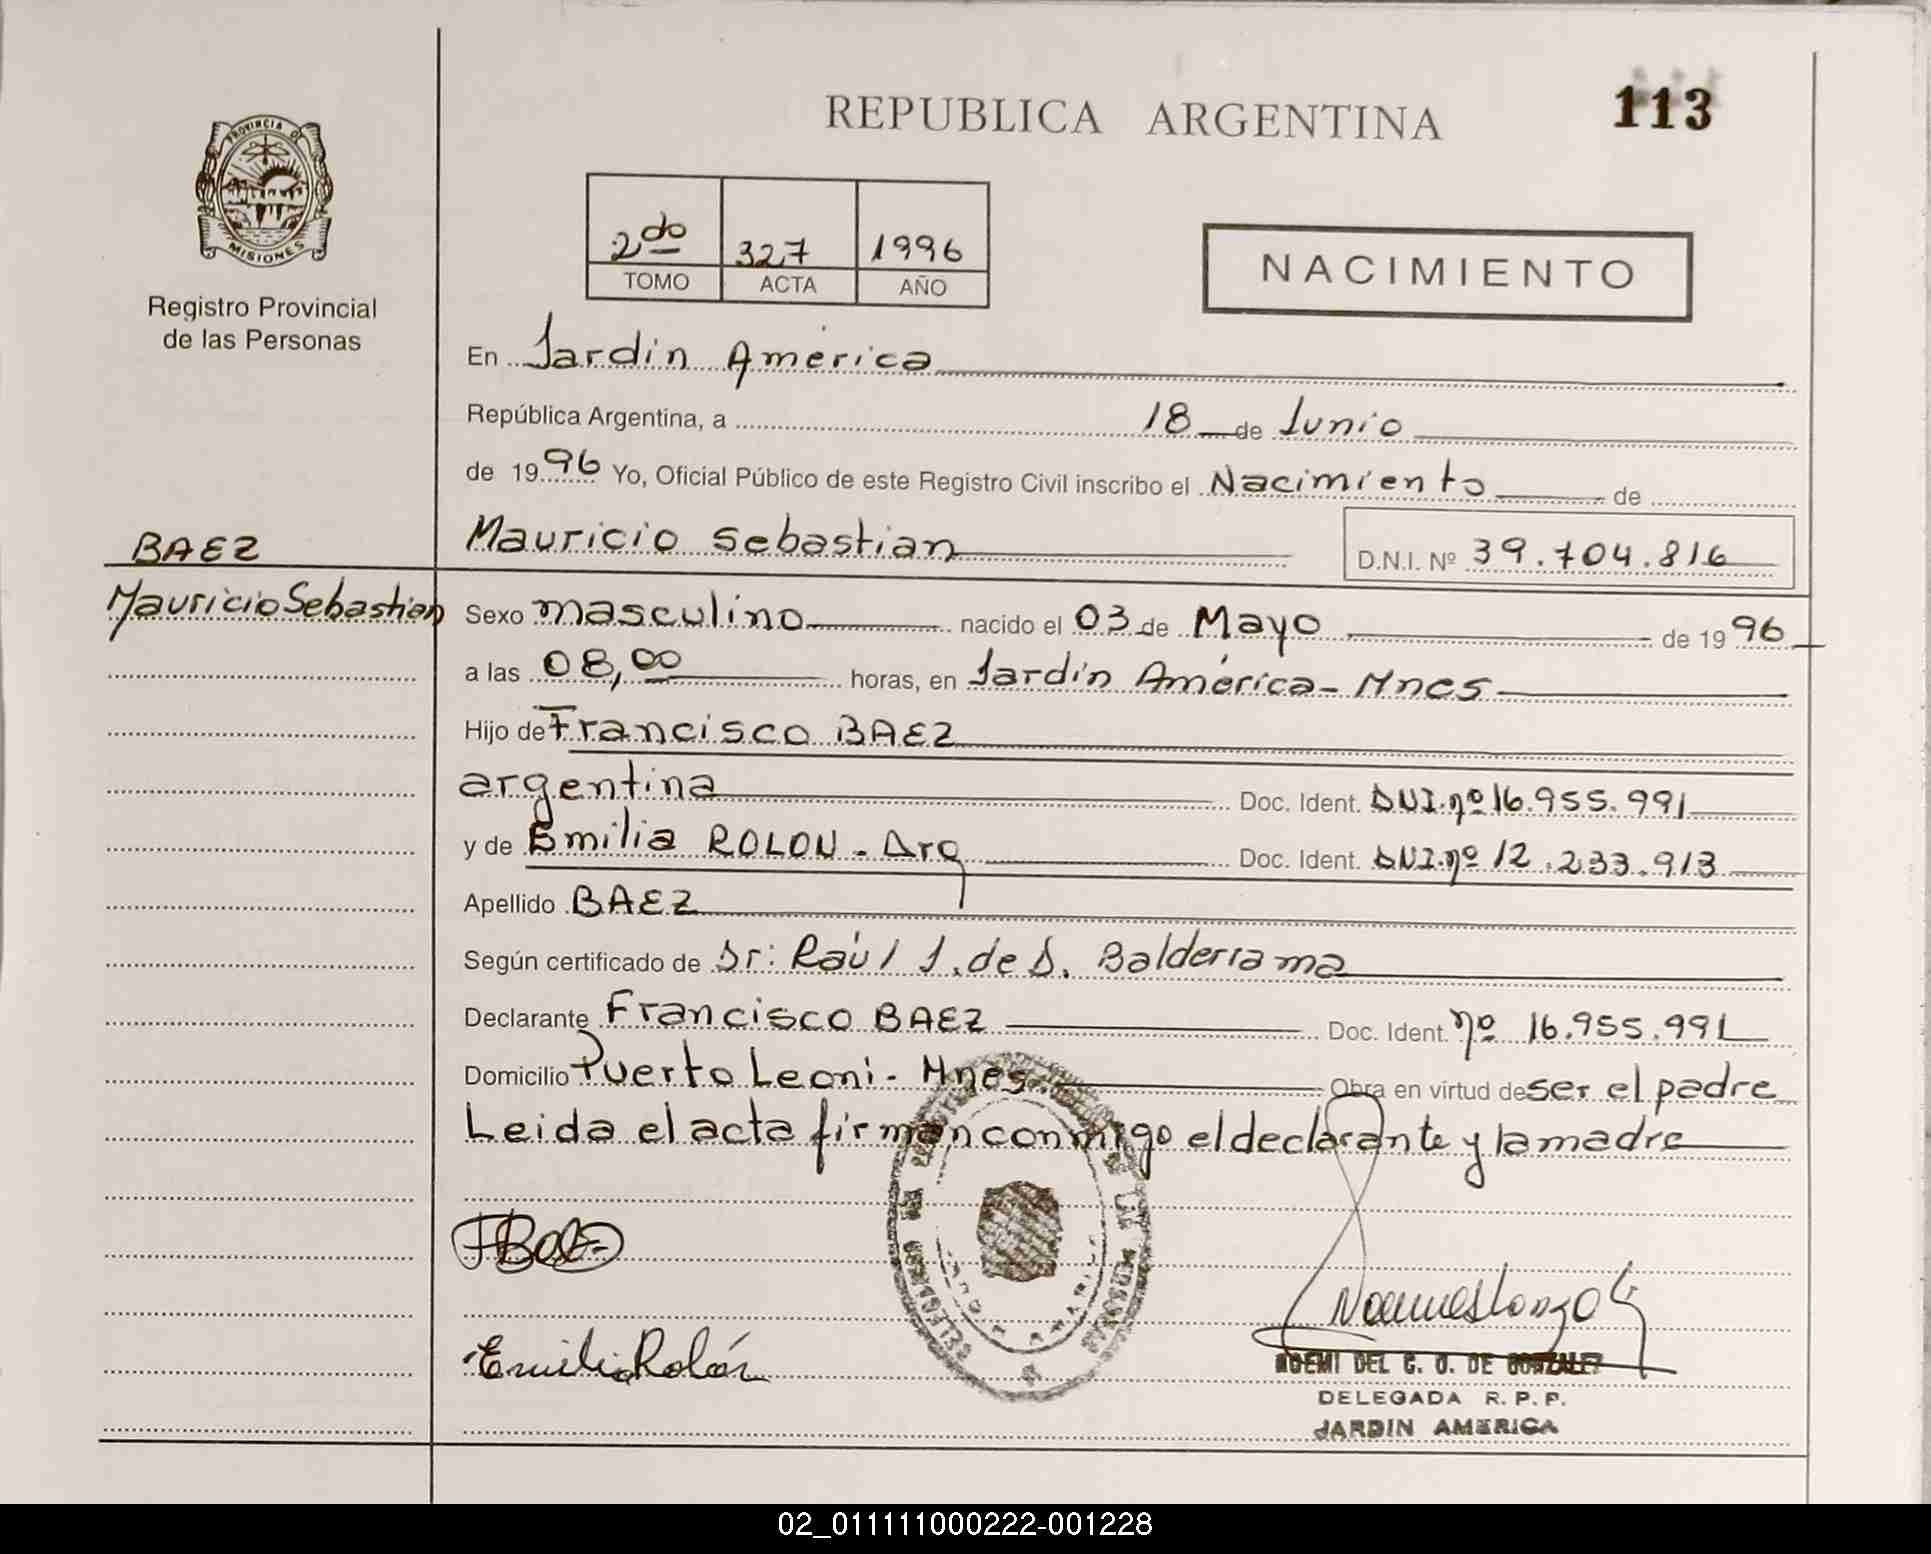 REPUBLICA ARGENTINA
113
PROVINCIA DE
MISIONES
Registro Provincial
de las Personas
2do 327 1996
TOMO ACTA AÑO
NACIMIENTO
En Jardin América
República Argentina, a 18 de Junio
de 1996 Yo, Oficial Público de este Registro Civil inscribo el Nacimiento de
BAEZ
Mauricio Sebastian
Mauricio Sebastian D.N.I. Nº 39.704.816
Sexo masculino nacido el 03 de Mayo de 1996
a las 08,00 horas, en Jardin América - Mnes
Hijo de Francisco BAEZ
argentina Doc. Ident. DNI.nº 16.955.991
y de Emilia ROLON - Arg Doc. Ident. DNI.nº 12.233.913
Apellido BAEZ
Según certificado de Dr: Raúl J. de D. Balderrama
Declarante Francisco BAEZ Doc. Ident. nº 16.955.991
Domicilio Puerto Leoni - Mnes Obra en virtud de ser el padre
Leida el acta firman conmigo el declarante y la madre
FBaez
Emilia Rolón
NOEMI DEL C. O. DE GONZALEZ
DELEGADA R. P. P.
JARDIN AMERICA
02_011111000222-001228